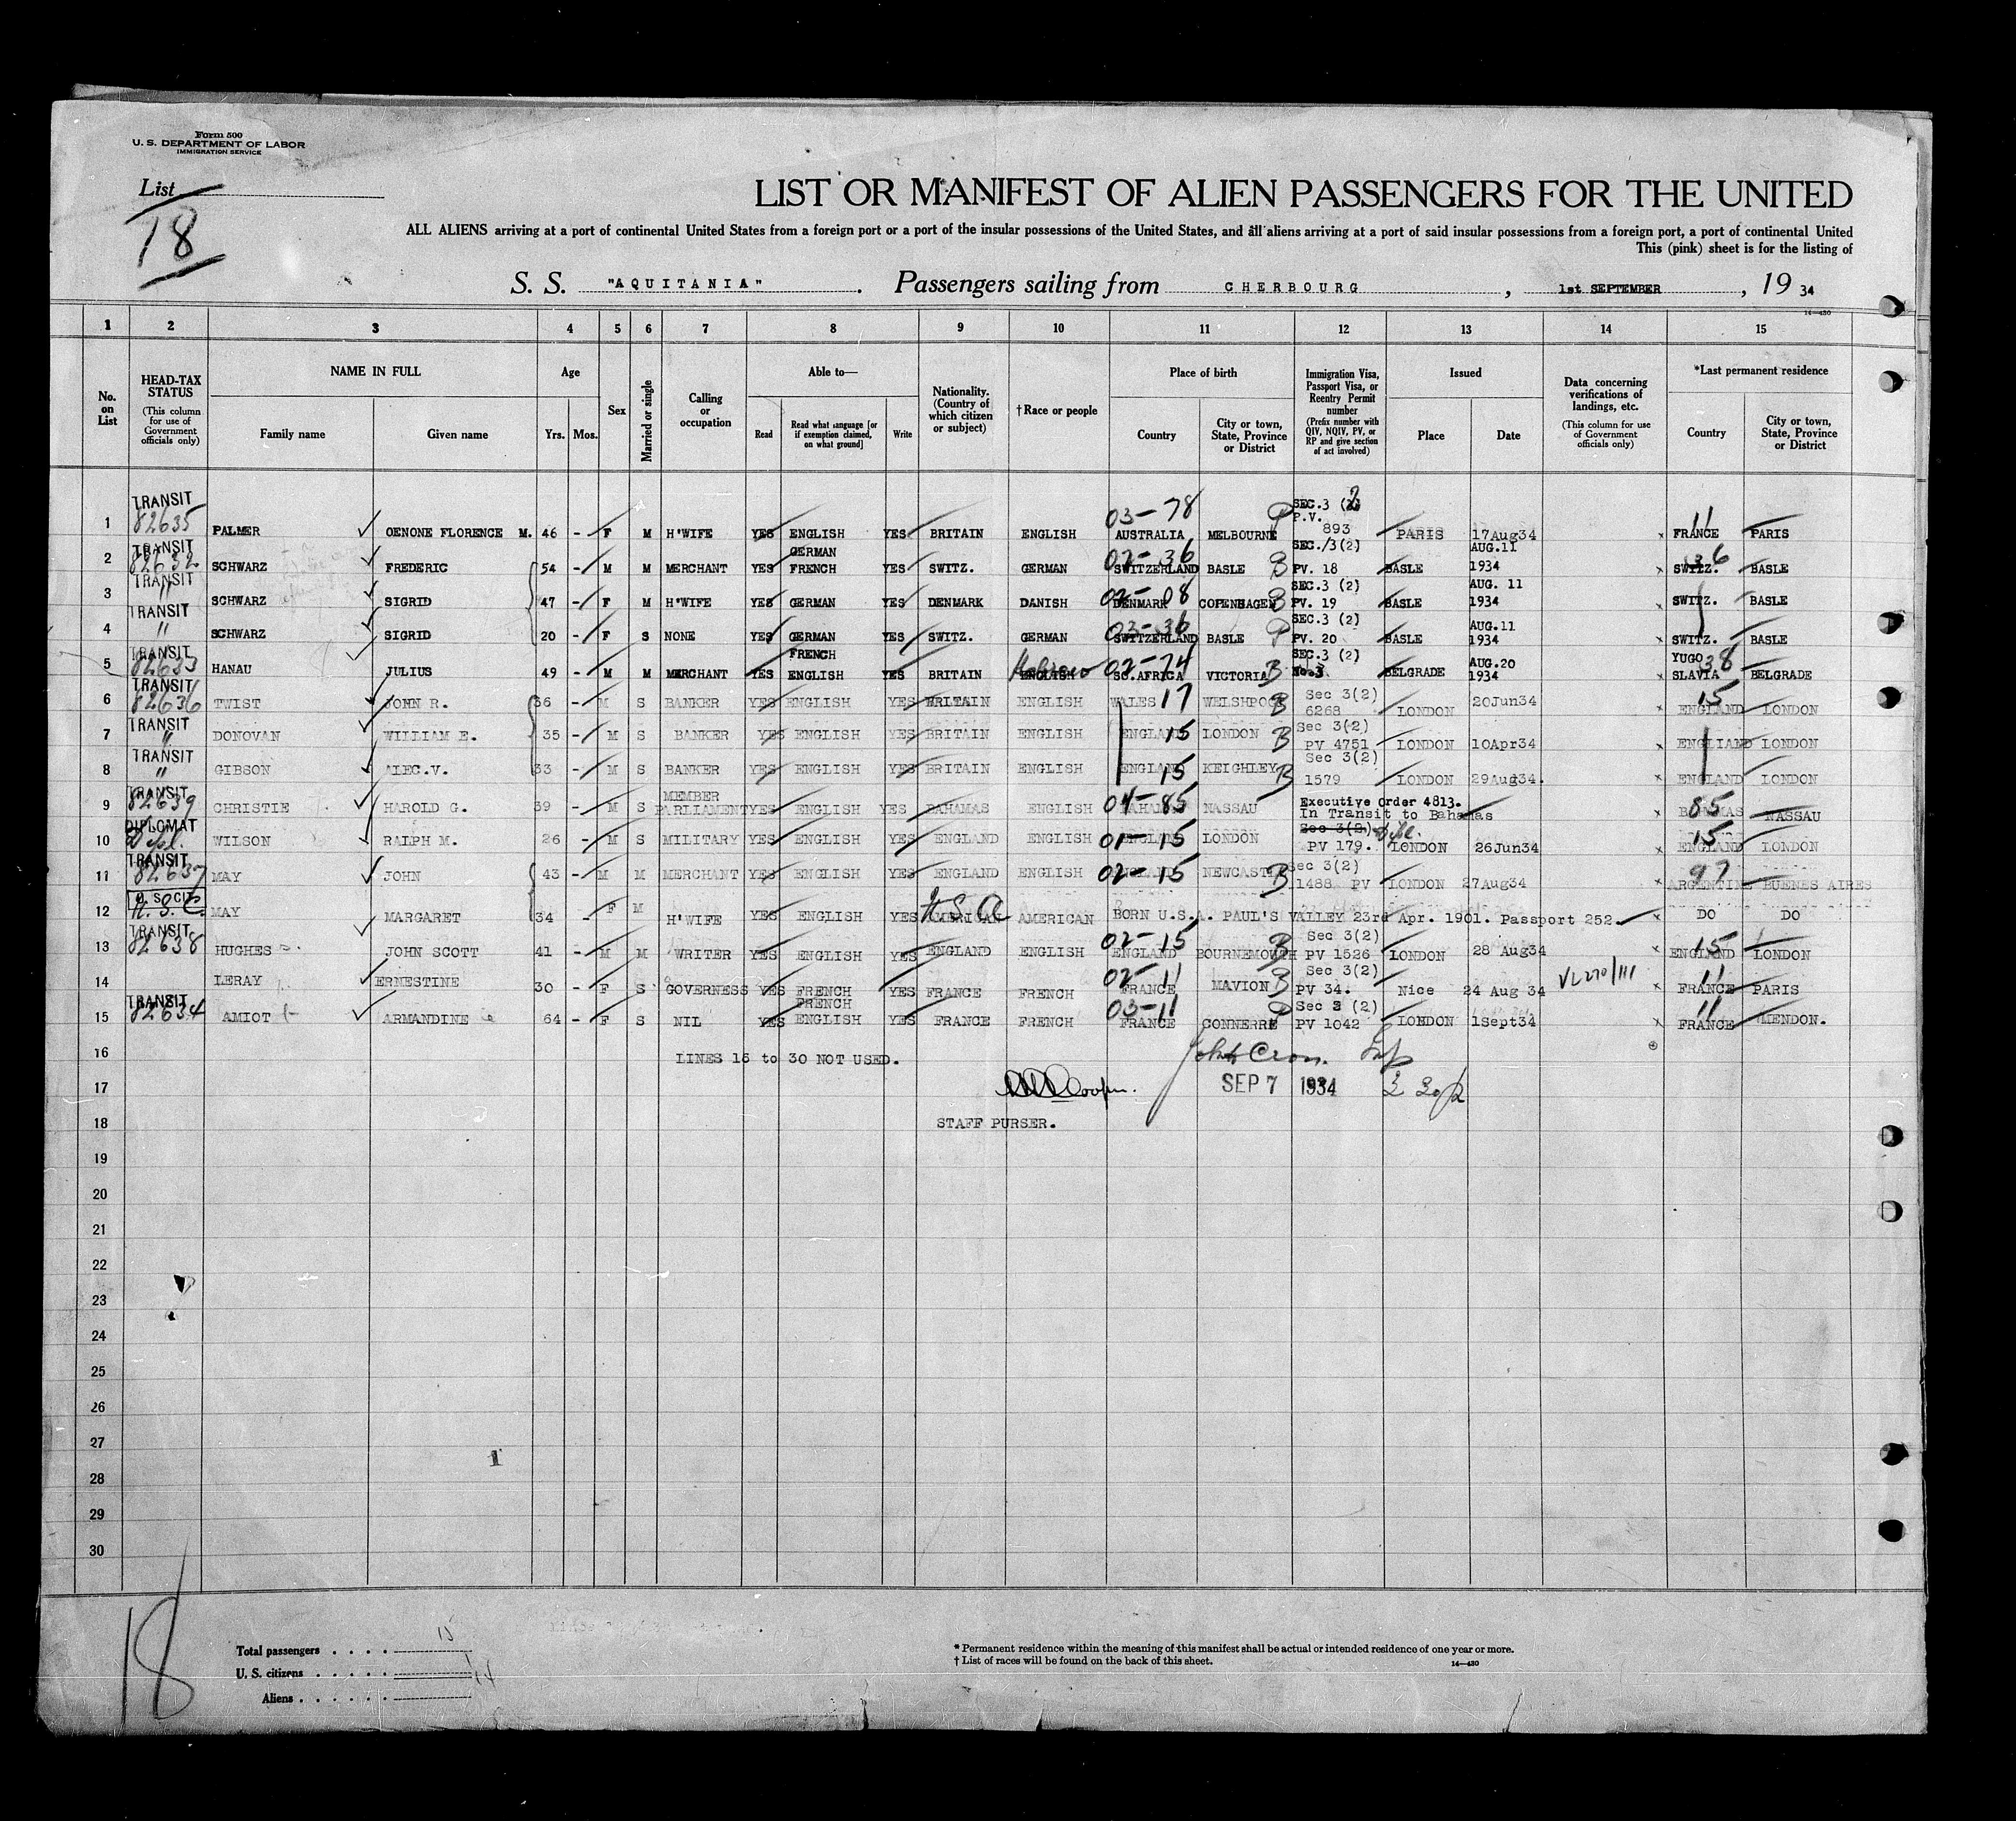 Form 500
U. S. DEPARTMENT OF LABOR
IMMIGRATION SERVICE
List
18
LIST OR MANIFEST OF ALIEN PASSENGERS FOR THE UNITED
ALL ALIENS arriving at a port of continental United States from a foreign port or a port of the insular possessions of the United States, and all aliens arriving at a port of said insular possessions from a foreign port, a port of continental United
This (pink) sheet is for the listing of
S. S. "AQUITANIA". Passengers sailing from CHERBOURG, 1st SEPTEMBER, 19 34
14—430
1 2 3 4 5 6 7 8 9 10 11 12 13 14 15
No. on List
HEAD-TAX STATUS (This column for use of Government officials only)
NAME IN FULL Family name Given name
Age Yrs. Mos.
Sex
Married or single
Calling or occupation
Able to— Read Read what language [or if exemption claimed, on what ground] Write
Nationality. (Country of which citizen or subject)
†Race or people
Place of birth Country City or town, State, Province or District
Immigration Visa, Passport Visa, or Reentry Permit number (Prefix number with QIV, NQIV, PV, or RP and give section of act involved)
Issued Place Date
Data concerning verifications of landings, etc. (This column for use of Government officials only)
*Last permanent residence Country City or town, State, Province or District
1 TRANSIT 82635 PALMER OENONE FLORENCE M. 46 - F M H'WIFE YES ENGLISH YES BRITAIN ENGLISH 03-78 AUSTRALIA MELBOURNE P SEC.3 (2) P.V. 893 PARIS 17Aug34 x 11 FRANCE PARIS
2 TRANSIT 82632 SCHWARZ FREDERIC 54 - M M MERCHANT YES GERMAN FRENCH YES SWITZ. GERMAN 02-36 SWITZERLAND BASLE B SEC./3(2) PV. 18 BASLE AUG.11 1934 x 36 SWITZ. BASLE
3 TRANSIT " SCHWARZ SIGRID 47 - F M H'WIFE YES GERMAN YES DENMARK DANISH 02-08 DENMARK COPENHAGEN B SEC.3 (2) PV. 19 BASLE AUG. 11 1934 x SWITZ. BASLE
4 TRANSIT " SCHWARZ SIGRID 20 - F S NONE YES GERMAN YES SWITZ. GERMAN 03-36 SWITZERLAND BASLE P SEC.3 (2) PV. 20 BASLE AUG.11 1934 x SWITZ. BASLE
5 TRANSIT 82633 HANAU JULIUS 49 - M M MERCHANT YES FRENCH ENGLISH YES BRITAIN Hebrew ENGLISH 02-74 SO.AFRICA VICTORIA B SEC.3 (2) No.3 BELGRADE AUG.20 1934 x YUGO 38 SLAVIA BELGRADE
6 TRANSIT 82636 TWIST JOHN R. 36 - M S BANKER YES ENGLISH YES BRITAIN ENGLISH WALES 17 WELSHPOOL B Sec 3(2) 6268 LONDON 20Jun34 x 15 ENGLAND LONDON
7 TRANSIT " DONOVAN WILLIAM E. 35 - M S BANKER YES ENGLISH YES BRITAIN ENGLISH ENGLAND 15 LONDON B Sec 3(2) PV 4751 LONDON 10Apr34 x ENGLIAND LONDON
8 TRANSIT " GIBSON ALEC.V. 33 - M S BANKER YES ENGLISH YES BRITAIN ENGLISH ENGLAND 15 KEIGHLEY B Sec 3(2) 1579 LONDON 29Aug34. x ENGLAND LONDON
9 TRANSIT 82639 CHRISTIE HAROLD G. 39 - M S MEMBER PARLIAMENT YES ENGLISH YES BAHAMAS ENGLISH 04-85 BAHAMAS NASSAU Executive Order 4813. In Transit to Bahamas 85 BAHAMAS NASSAU
10 DIPLOMAT Dipl. WILSON RALPH M. 26 - M S MILITARY YES ENGLISH YES ENGLAND ENGLISH 01-15 ENGLAND LONDON Sec 3(2) PV 179. LONDON 26Jun34 x 15 ENGLAND LONDON
11 TRANSIT 82637 MAY JOHN 43 - M M MERCHANT YES ENGLISH YES ENGLAND ENGLISH 02-15 ENGLAND NEWCASTLE B Sec 3(2) 1488 PV LONDON 27Aug34 x 97 ARGENTINE BUENES AIRES
12 U. S. CIT U. S. C. MAY MARGARET 34 - F M H'WIFE YES ENGLISH YES U S A AMERICAN AMERICAN BORN U.S.A. PAUL'S VALLEY 23rd Apr. 1901. Passport 252. x DO DO
13 TRANSIT 82638 HUGHES JOHN SCOTT 41 - M M WRITER YES ENGLISH YES ENGLAND ENGLISH 02-15 ENGLAND BOURNEMOUTH B Sec 3(2) PV 1526 LONDON 28 Aug34 x 15 ENGLAND LONDON
14 LERAY ERNESTINE 30 - F S GOVERNESS YES FRENCH YES FRANCE FRENCH 02-11 FRANCE MAVION B Sec 3(2) PV 34. Nice 24 Aug 34 x 11 FRANCE PARIS
15 TRANSIT 82634 AMIOT ARMANDINE 64 - F S NIL YES FRENCH ENGLISH YES FRANCE FRENCH 03-11 FRANCE CONNERRE P Sec 3 (2) PV 1042 LONDON 1Sept34 x 11 FRANCE MENDON.
16 LINES 16 to 30 NOT USED.
17 Cooper. SEP 7 1934
18 STAFF PURSER.
19
20
21
22
23
24
25
26
27
28
29
30
18
Total passengers 15
U. S. citizens 1
Aliens 14
* Permanent residence within the meaning of this manifest shall be actual or intended residence of one year or more.
† List of races will be found on the back of this sheet.
14—430